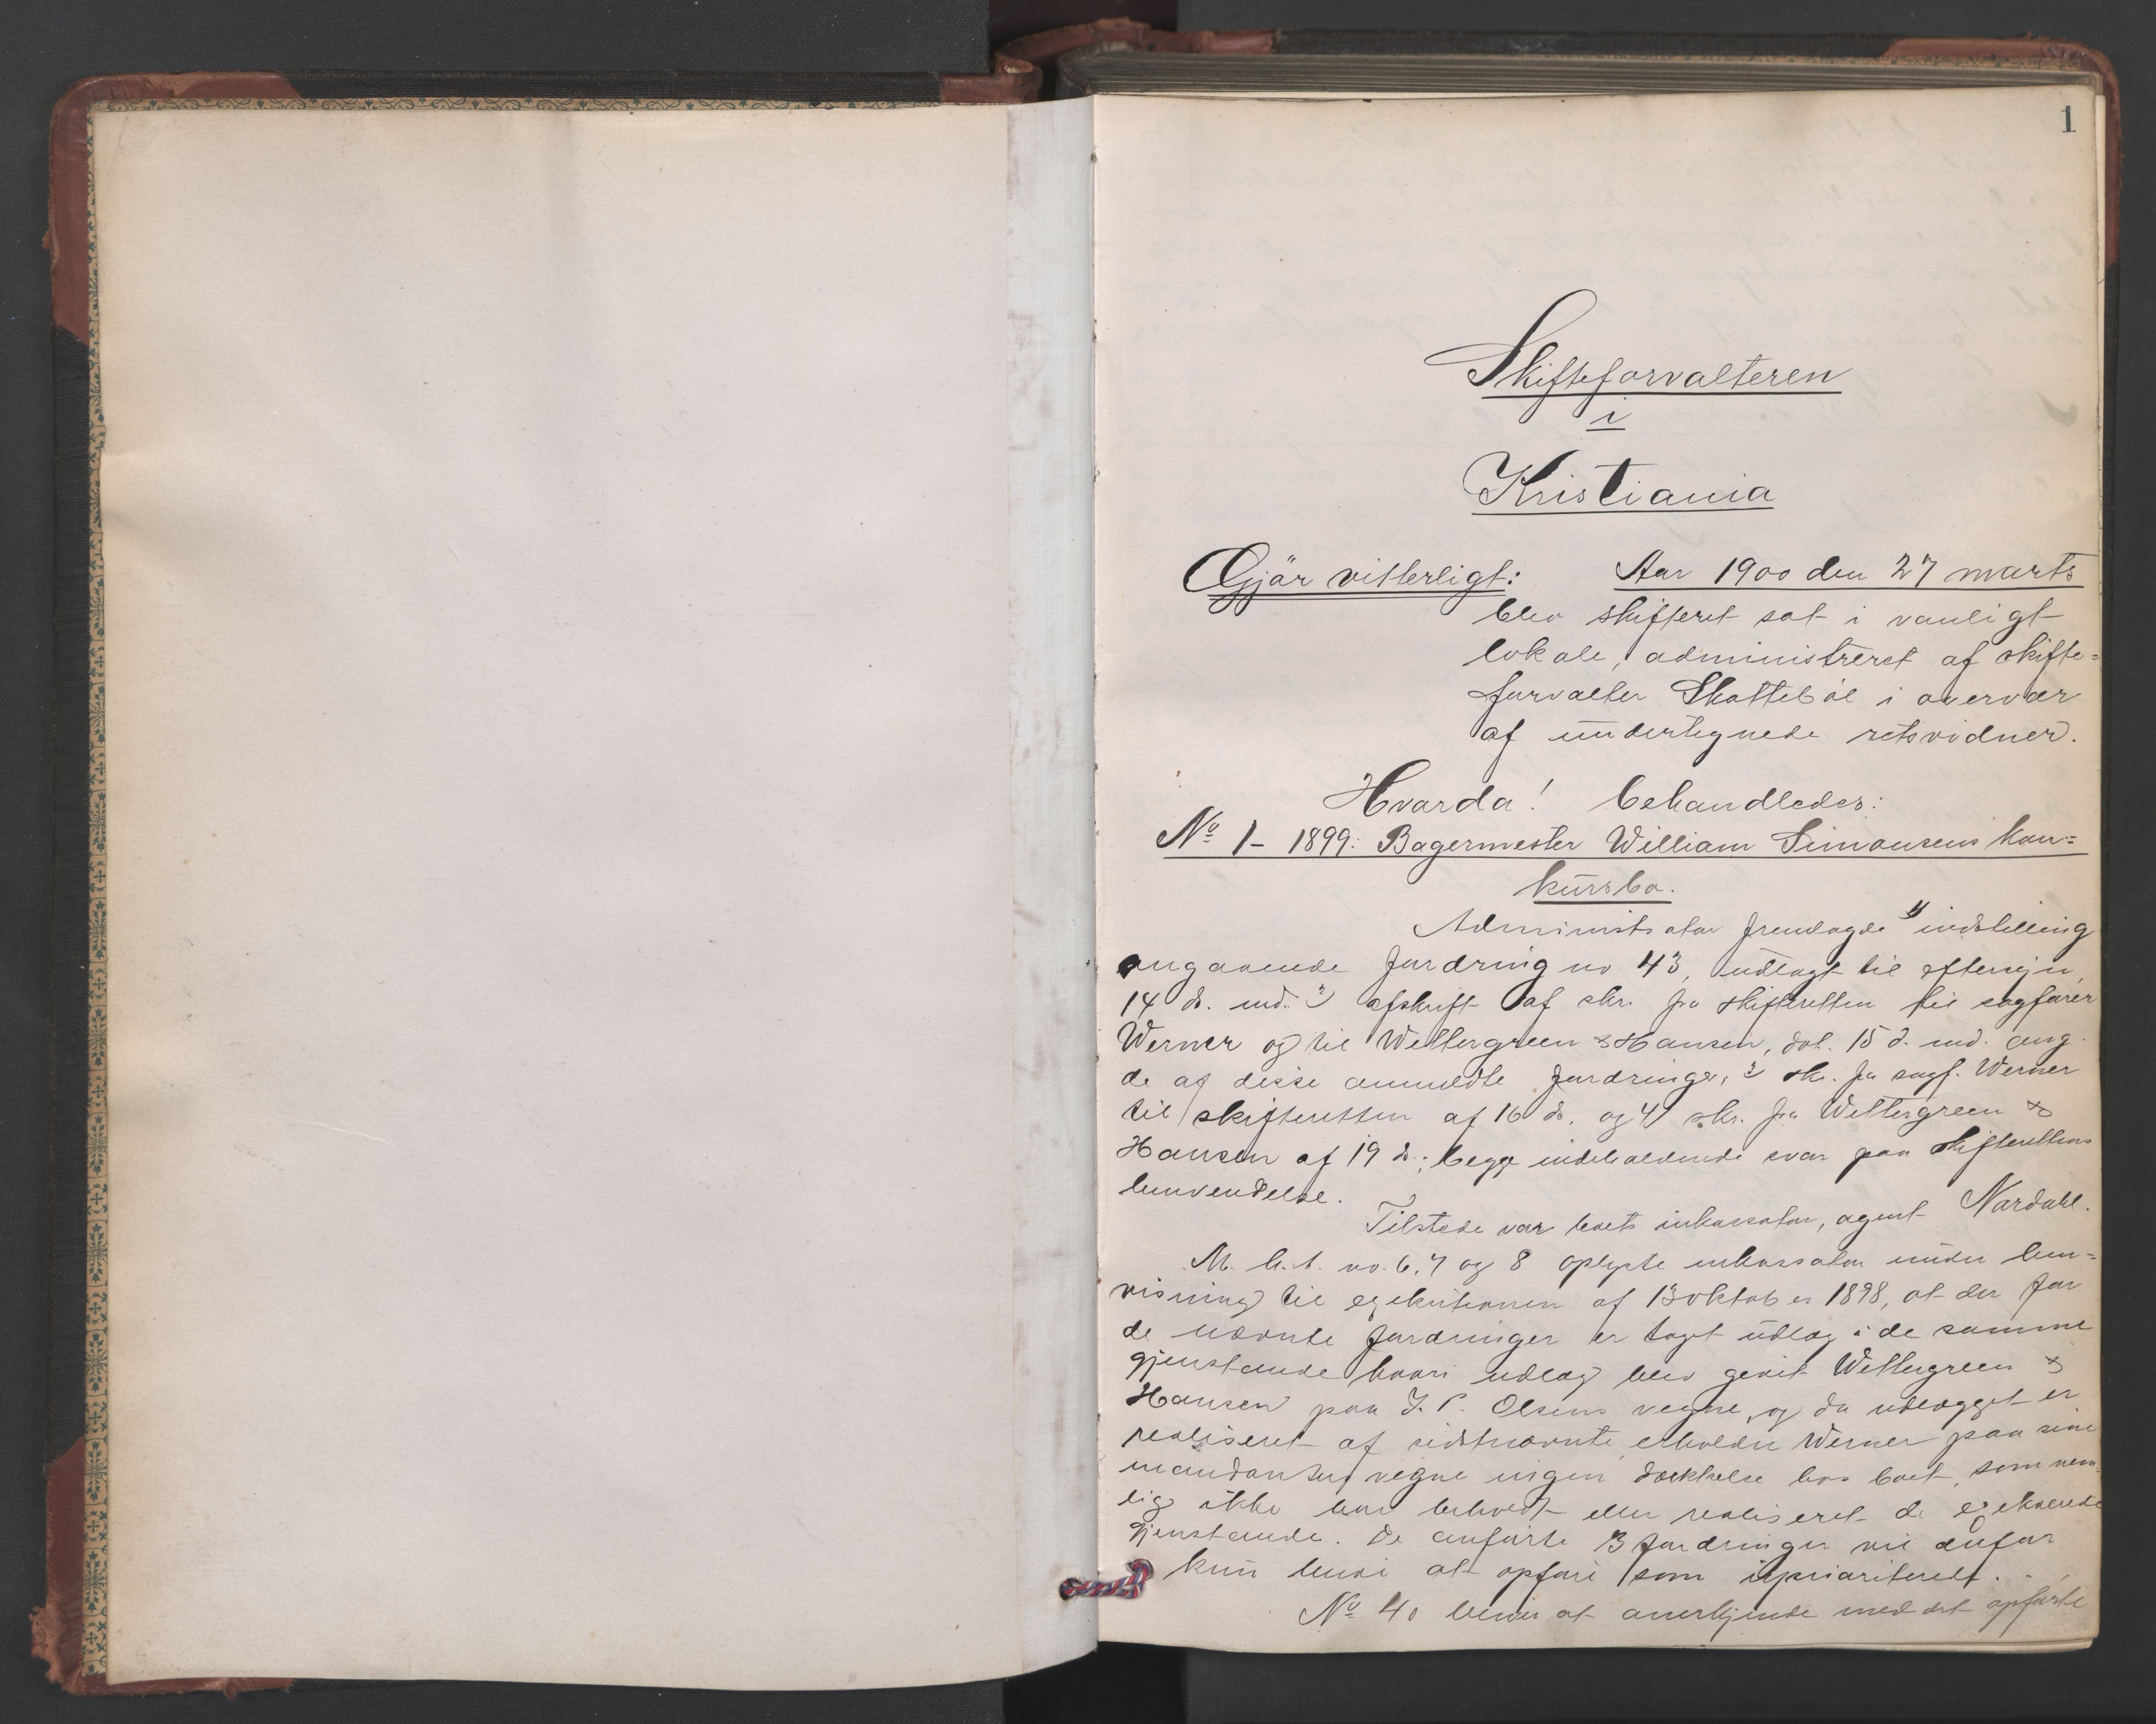 1
Skifteforvalteren
i
Kristiania
Gjör vitterligt: Aar 1900 den 27 marts
blev skifteret sat i vanligt
lokale, administreret af skifte=
forvalter Skattebøl i overvær
af undertegnede retsvidner.
Hvorda! behandledes:
No 1 - 1899: Bagermester William Simonsens kon=
kursbo.
Administrator fremlagde 1) indstilling
angaaende fordring no 43, udlagt til eftersyn
14 ds. md. 2) afskrift af skr. fra skifteretten til sagfører
Werner og til Wettergreen & Hansen, dat. 15 d. md. ang.
de af disse anmeldte fordringer, 3) skr. fra sagf. Werner
til skifteretten af 16 ds. og 4) skr. fra Wettergreen &
Hansen af 19 ds.; begge indeholdende svar paa skifterettens
henvendelse.
Tilstede var boets inkassator, agent Nordahl.
M. h. t. no. 6, 7 og 8 oplyste inkassator under hen=
visning til exekutionen af 13 oktober 1898, at der for
de nævnte fordringer er taget udlæg i de samme
gjenstande hvori udlæg blev gevet Wettergreen &
Hansen paa J. P. Olsens vegne, og da udlægget er
realiseret af sidstnævnte, erholder Werner paa sine
mandanters vegne ingen dækkelse hos boet, som nem=
lig ikke har behoedt eller realiseret de exekverede
gjenstande. De anførte 3 fordringer vil derfor
kun være at opføre som uprioriteret.
No 40 bliver at anerkjende med det opførte